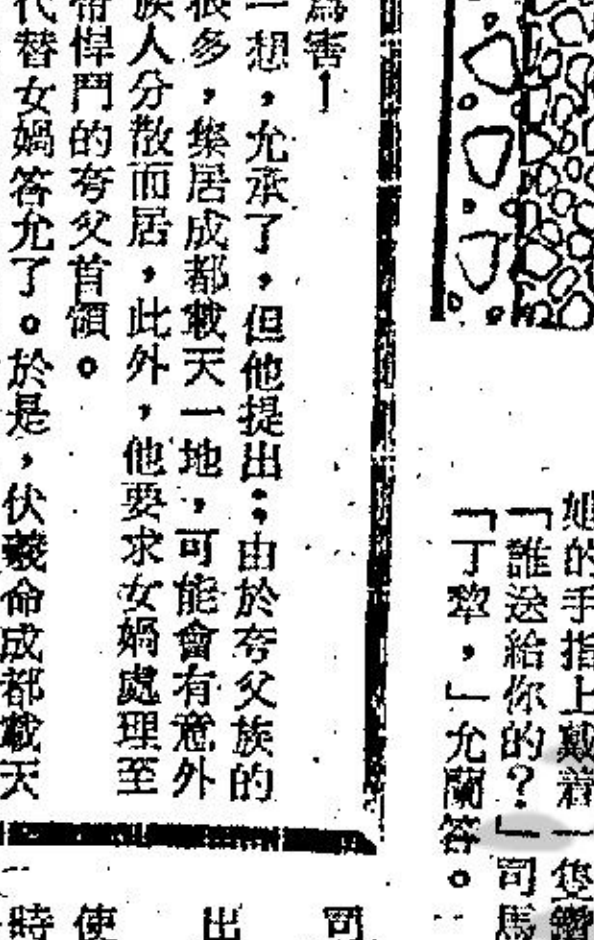 她的手指上戴着一隻鑽
「誰送給你的?」司馬
「丁犂,」允蘭答。
為害!
一想,允承了,但他提出:由於夸父族的
很多,集居成都載天一地,可能會有意外
族人分散而居,此外,他要求女媧處理至
帶悍鬥的夸父首領。
代替女媧答允了。於是,伏羲命成都載天
司
出
使
時